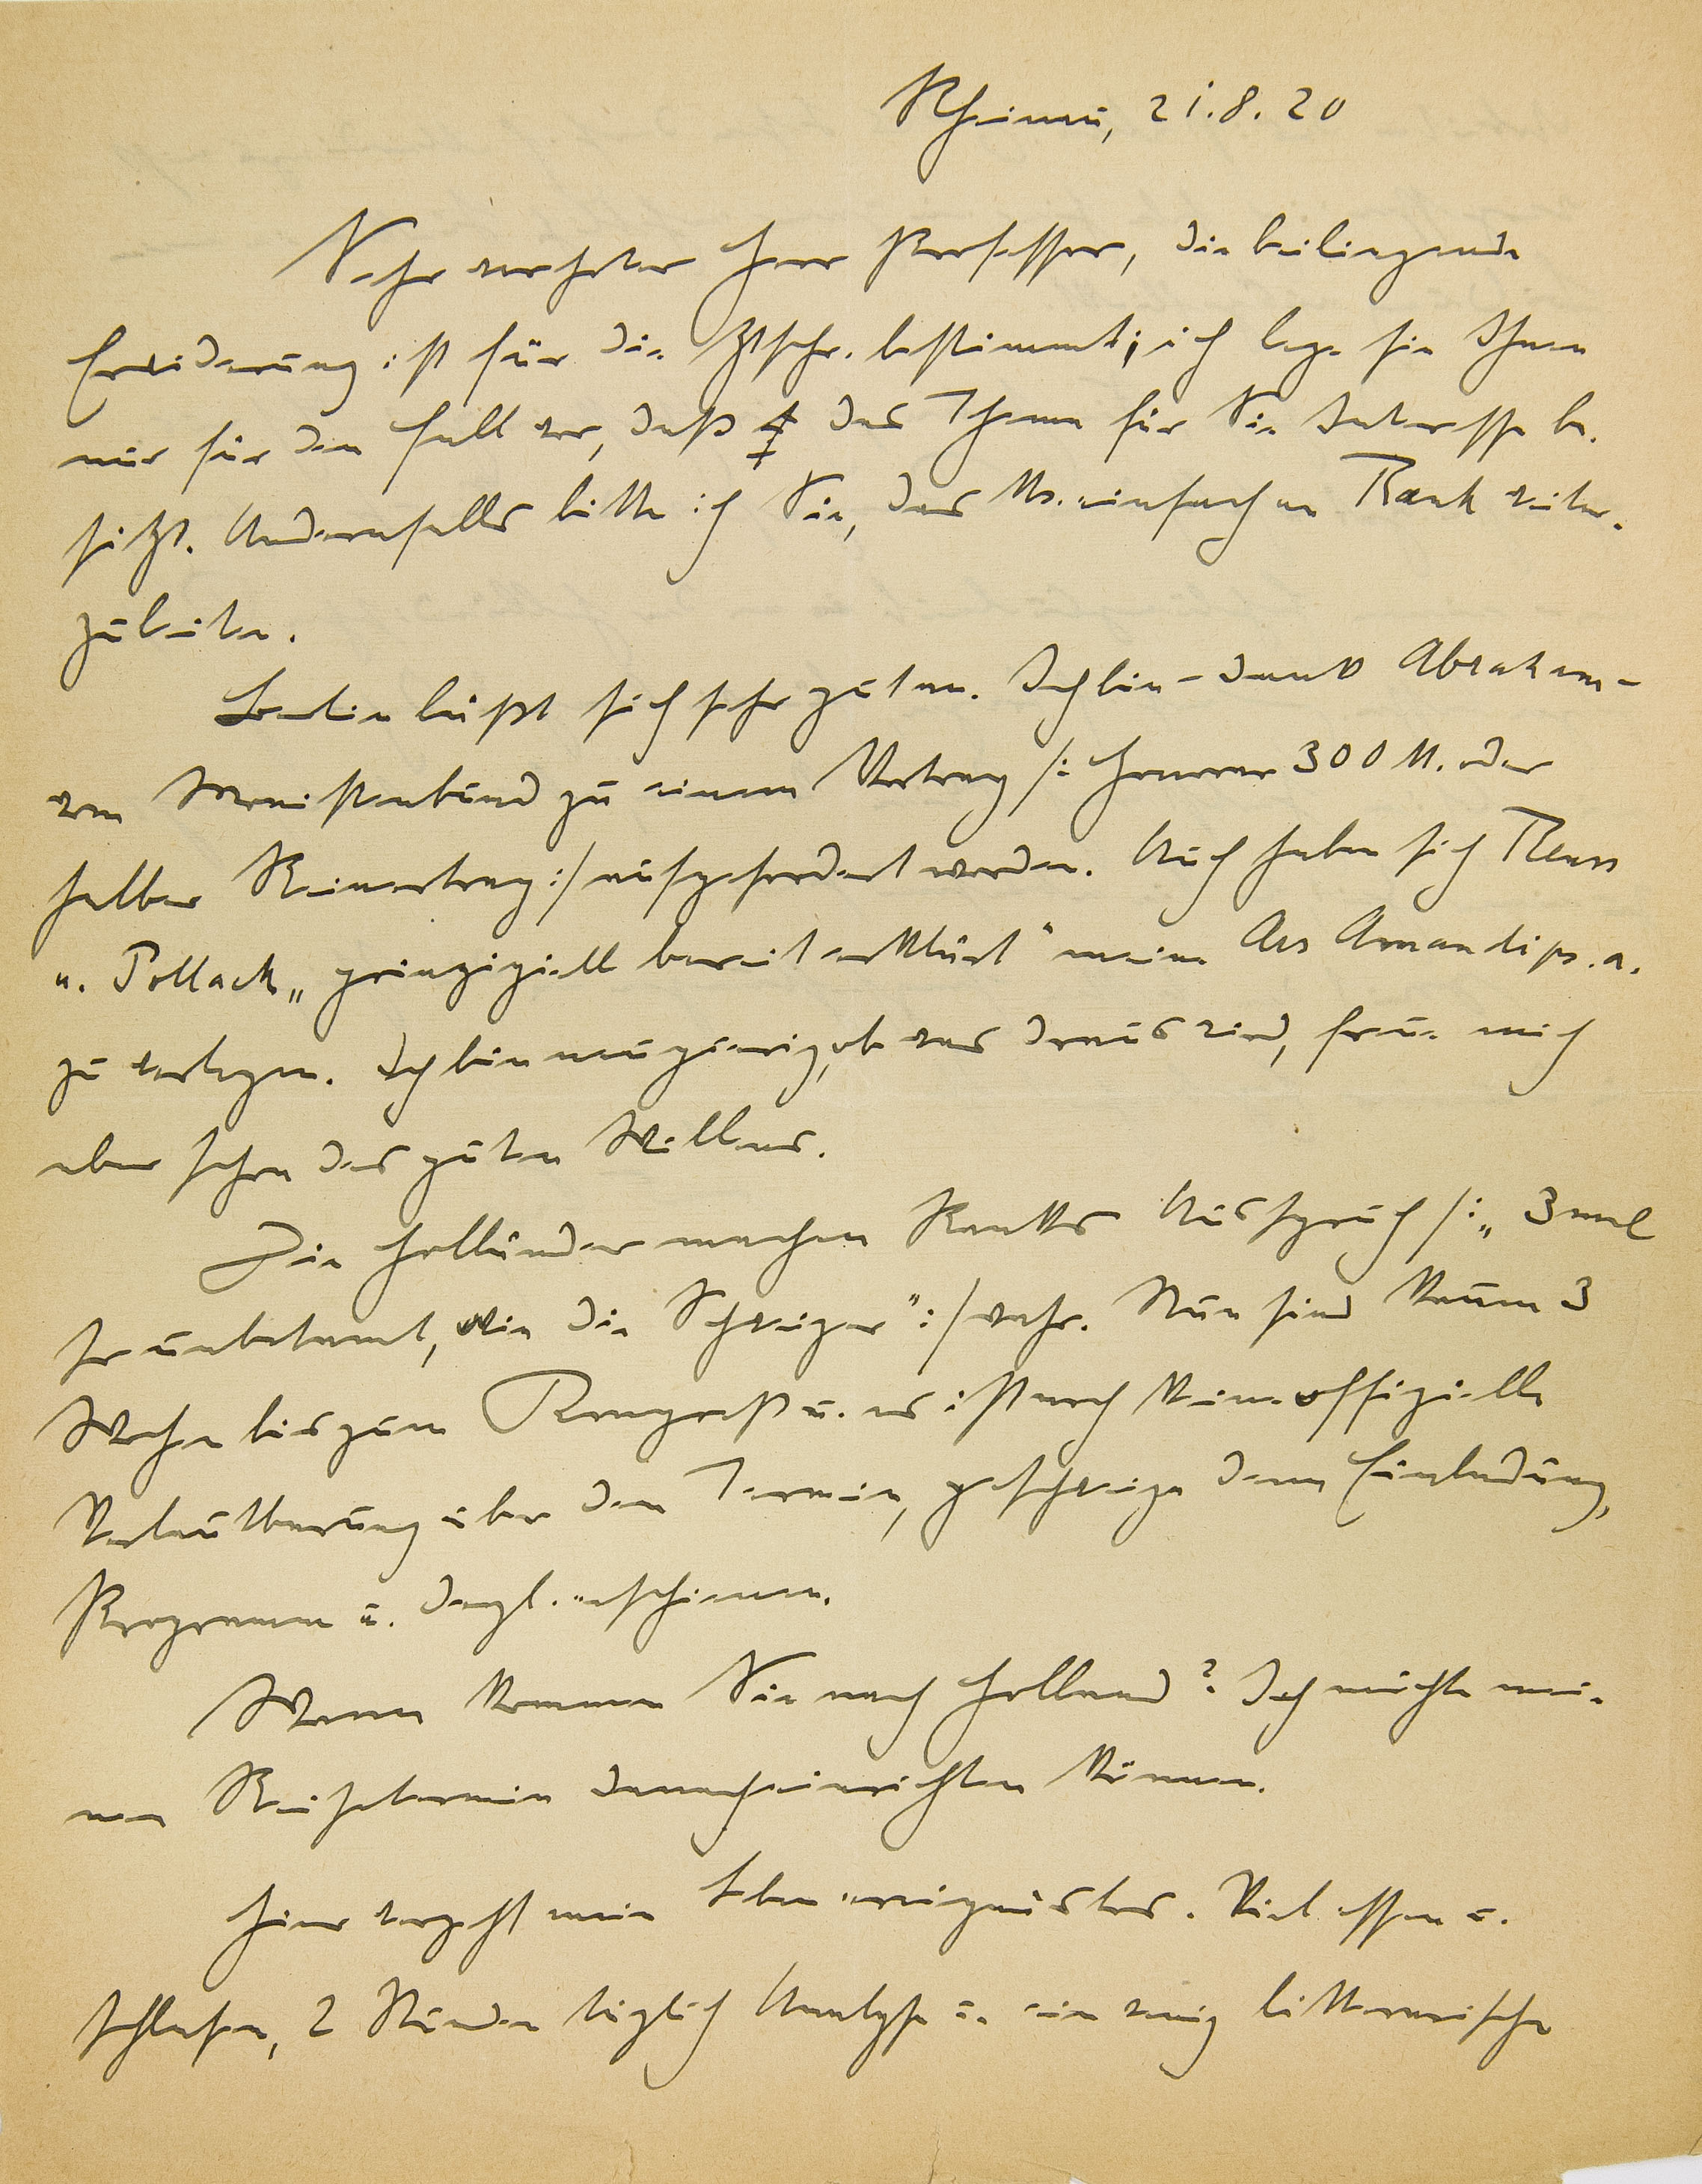 Rheinau, 21.8.20
Sehr verehrter Herr Professor, die beiliegende
Erwiderung ist für die Ztschr. bestimmt; ich lege sie Ihnen
nur für den Fall vor, daß das Thema für Sie Interesse be-
sitzt. Andernfalls bitte ich Sie, das Ms. einfach an Rank weiter-
zuleiten.
Berlin läßt sich sehr gut an. Ich bin – dank Abraham –
vom Monistenbund zu einem Vortrag /: Honorar 300 M. oder
halber Reinertrag :/ aufgefordert worden. Auch haben sich Reuss
u. Pollack „prinzipiell bereit erklärt" meine Ars Amandi ps. a.
zu verlegen. Ich bin neugierig, ob was draus wird, freue mich
aber schon des guten Willens.
Die Holländer machen Ranks Ausspruch /: „3 mal
so unbekannt, wie die Schweizer" :/ wahr. Nun sind kaum 3
Wochen bis zum Kongreß u. es ist noch keine offizielle
Verlautbarung über den Termin, geschweige denn Einladung,
Programm u. dergl. erschienen.
Wann kommen Sie nach Holland? Ich möchte mei-
nen Reisetermin danach einrichten können.
Hier vergeht mein Leben ereignislos. Viel essen u.
schlafen, 2 Stunden täglich Analyse u. ein wenig litterarische